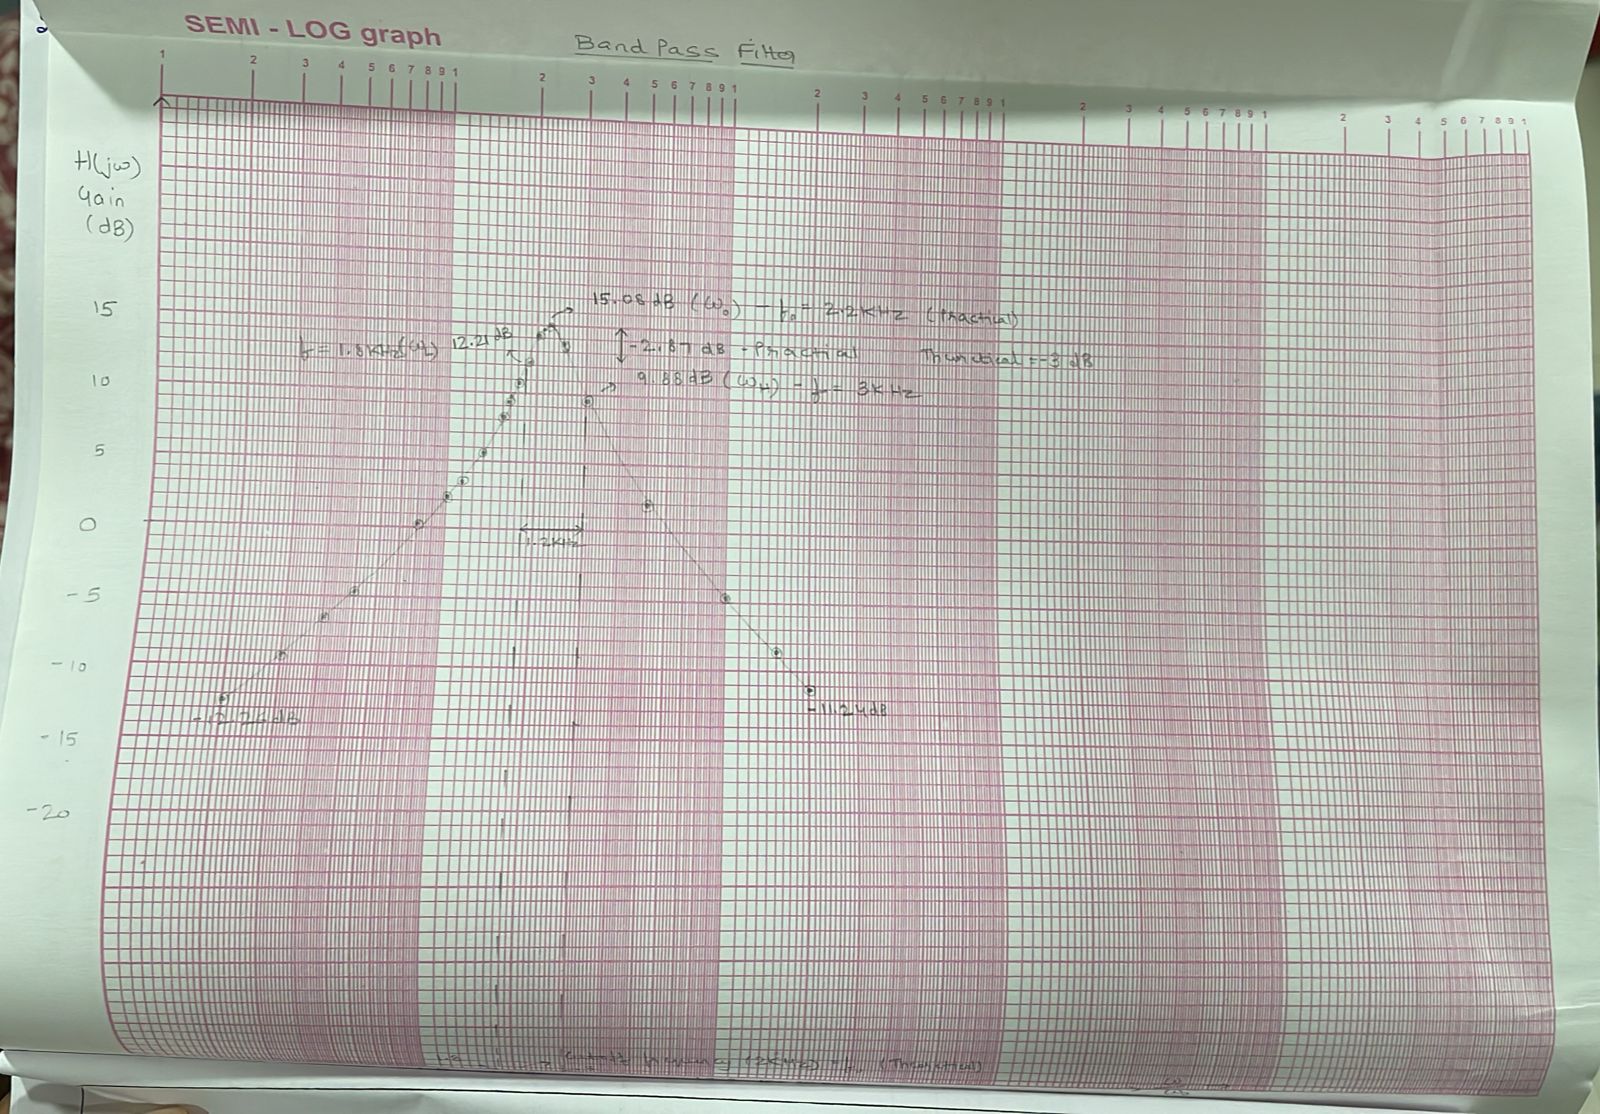 SEMI - LOG graph
Band Pass Filter
1 2 3 4 5 6 7 8 9 1 2 3 4 5 6 7 8 9 1 2 3 4 5 6 7 8 9 1 2 3 4 5 6 7 8 9 1 2 3 4 5 6 7 8 9 1
H(jω)
Gain
(dB)
15
15.08 dB (ω₀) - f₀ = 2.2KHz (Practical)
f = 1.8KHz(ωL) 12.21 dB
-2.87 dB - Practial Theoretical = -3 dB
10
9.88 dB (ωH) - f = 3KHz
5
0
1.2KHz
-5
-10
-12.26 dB
-11.24 dB
-15
-20
frequency (2KHz) (Theoretical)